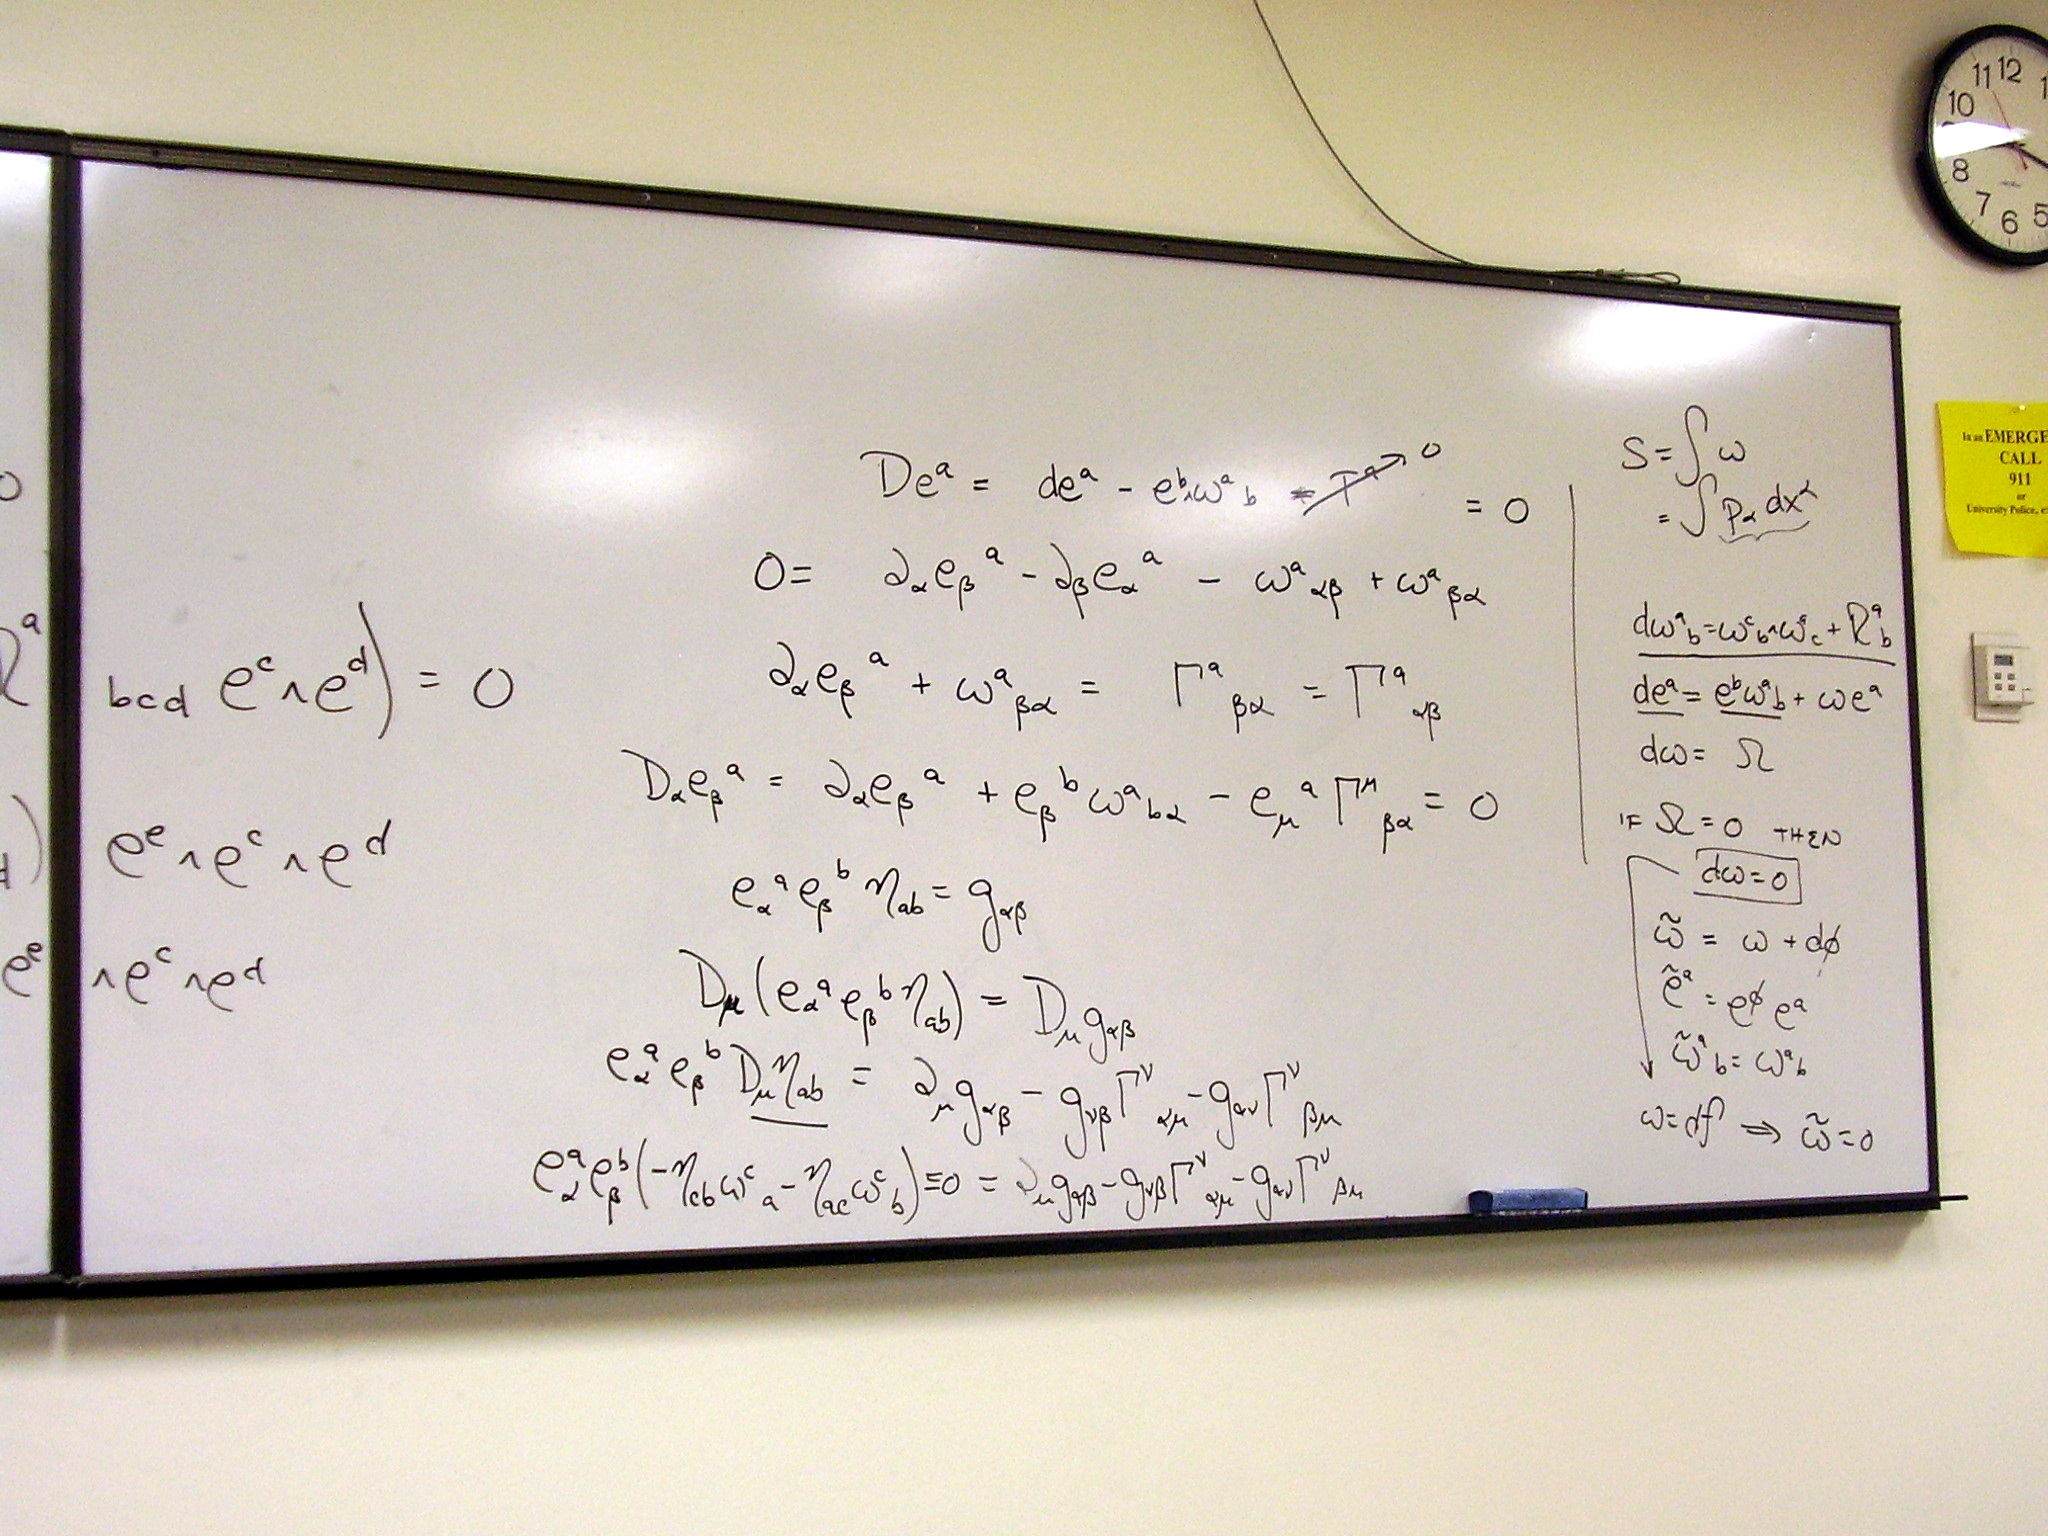 0
R^a
bcd e^c ∧ e^d) = 0
d) e^e ∧ e^c ∧ e^d
e^e ∧ e^c ∧ e^d
De^a = de^a - e^b ∧ ω^a_b - T^a → 0 = 0
0 = ∂_α e_β^a - ∂_β e_α^a - ω^a_{αβ} + ω^a_{βα}
∂_α e_β^a + ω^a_{βα} = Γ^a_{βα} = Γ^a_{αβ}
D_α e_β^a = ∂_α e_β^a + e_β^b ω^a_{bα} - e_μ^a Γ^μ_{βα} = 0
e_α^a e_β^b η_{ab} = g_{αβ}
D_μ (e_α^a e_β^b η_{ab}) = D_μ g_{αβ}
e_α^a e_β^b D_μ η_{ab} = ∂_μ g_{αβ} - g_{νβ} Γ^ν_{αμ} - g_{αν} Γ^ν_{βμ}
e_α^a e_β^b (-η_{cb} ω^c_a - η_{ac} ω^c_b) ≡ 0 = ∂_μ g_{αβ} - g_{νβ} Γ^ν_{αμ} - g_{αν} Γ^ν_{βμ}
S = ∫ ω
= ∫ p_α dx^α
dω^a_b = ω^c_b ∧ ω^a_c + R^a_b
de^a = e^b ω^a_b + ω e^a
dω = Ω
IF Ω = 0 THEN
dω = 0
ω̃ = ω + dϕ
ẽ^a = e^ϕ e^a
ω̃^a_b = ω^a_b
ω = df ⇒ ω̃ = 0
11 12 1
10
8
7 6 5
In an EMERGE
CALL
911
or
University Police, e